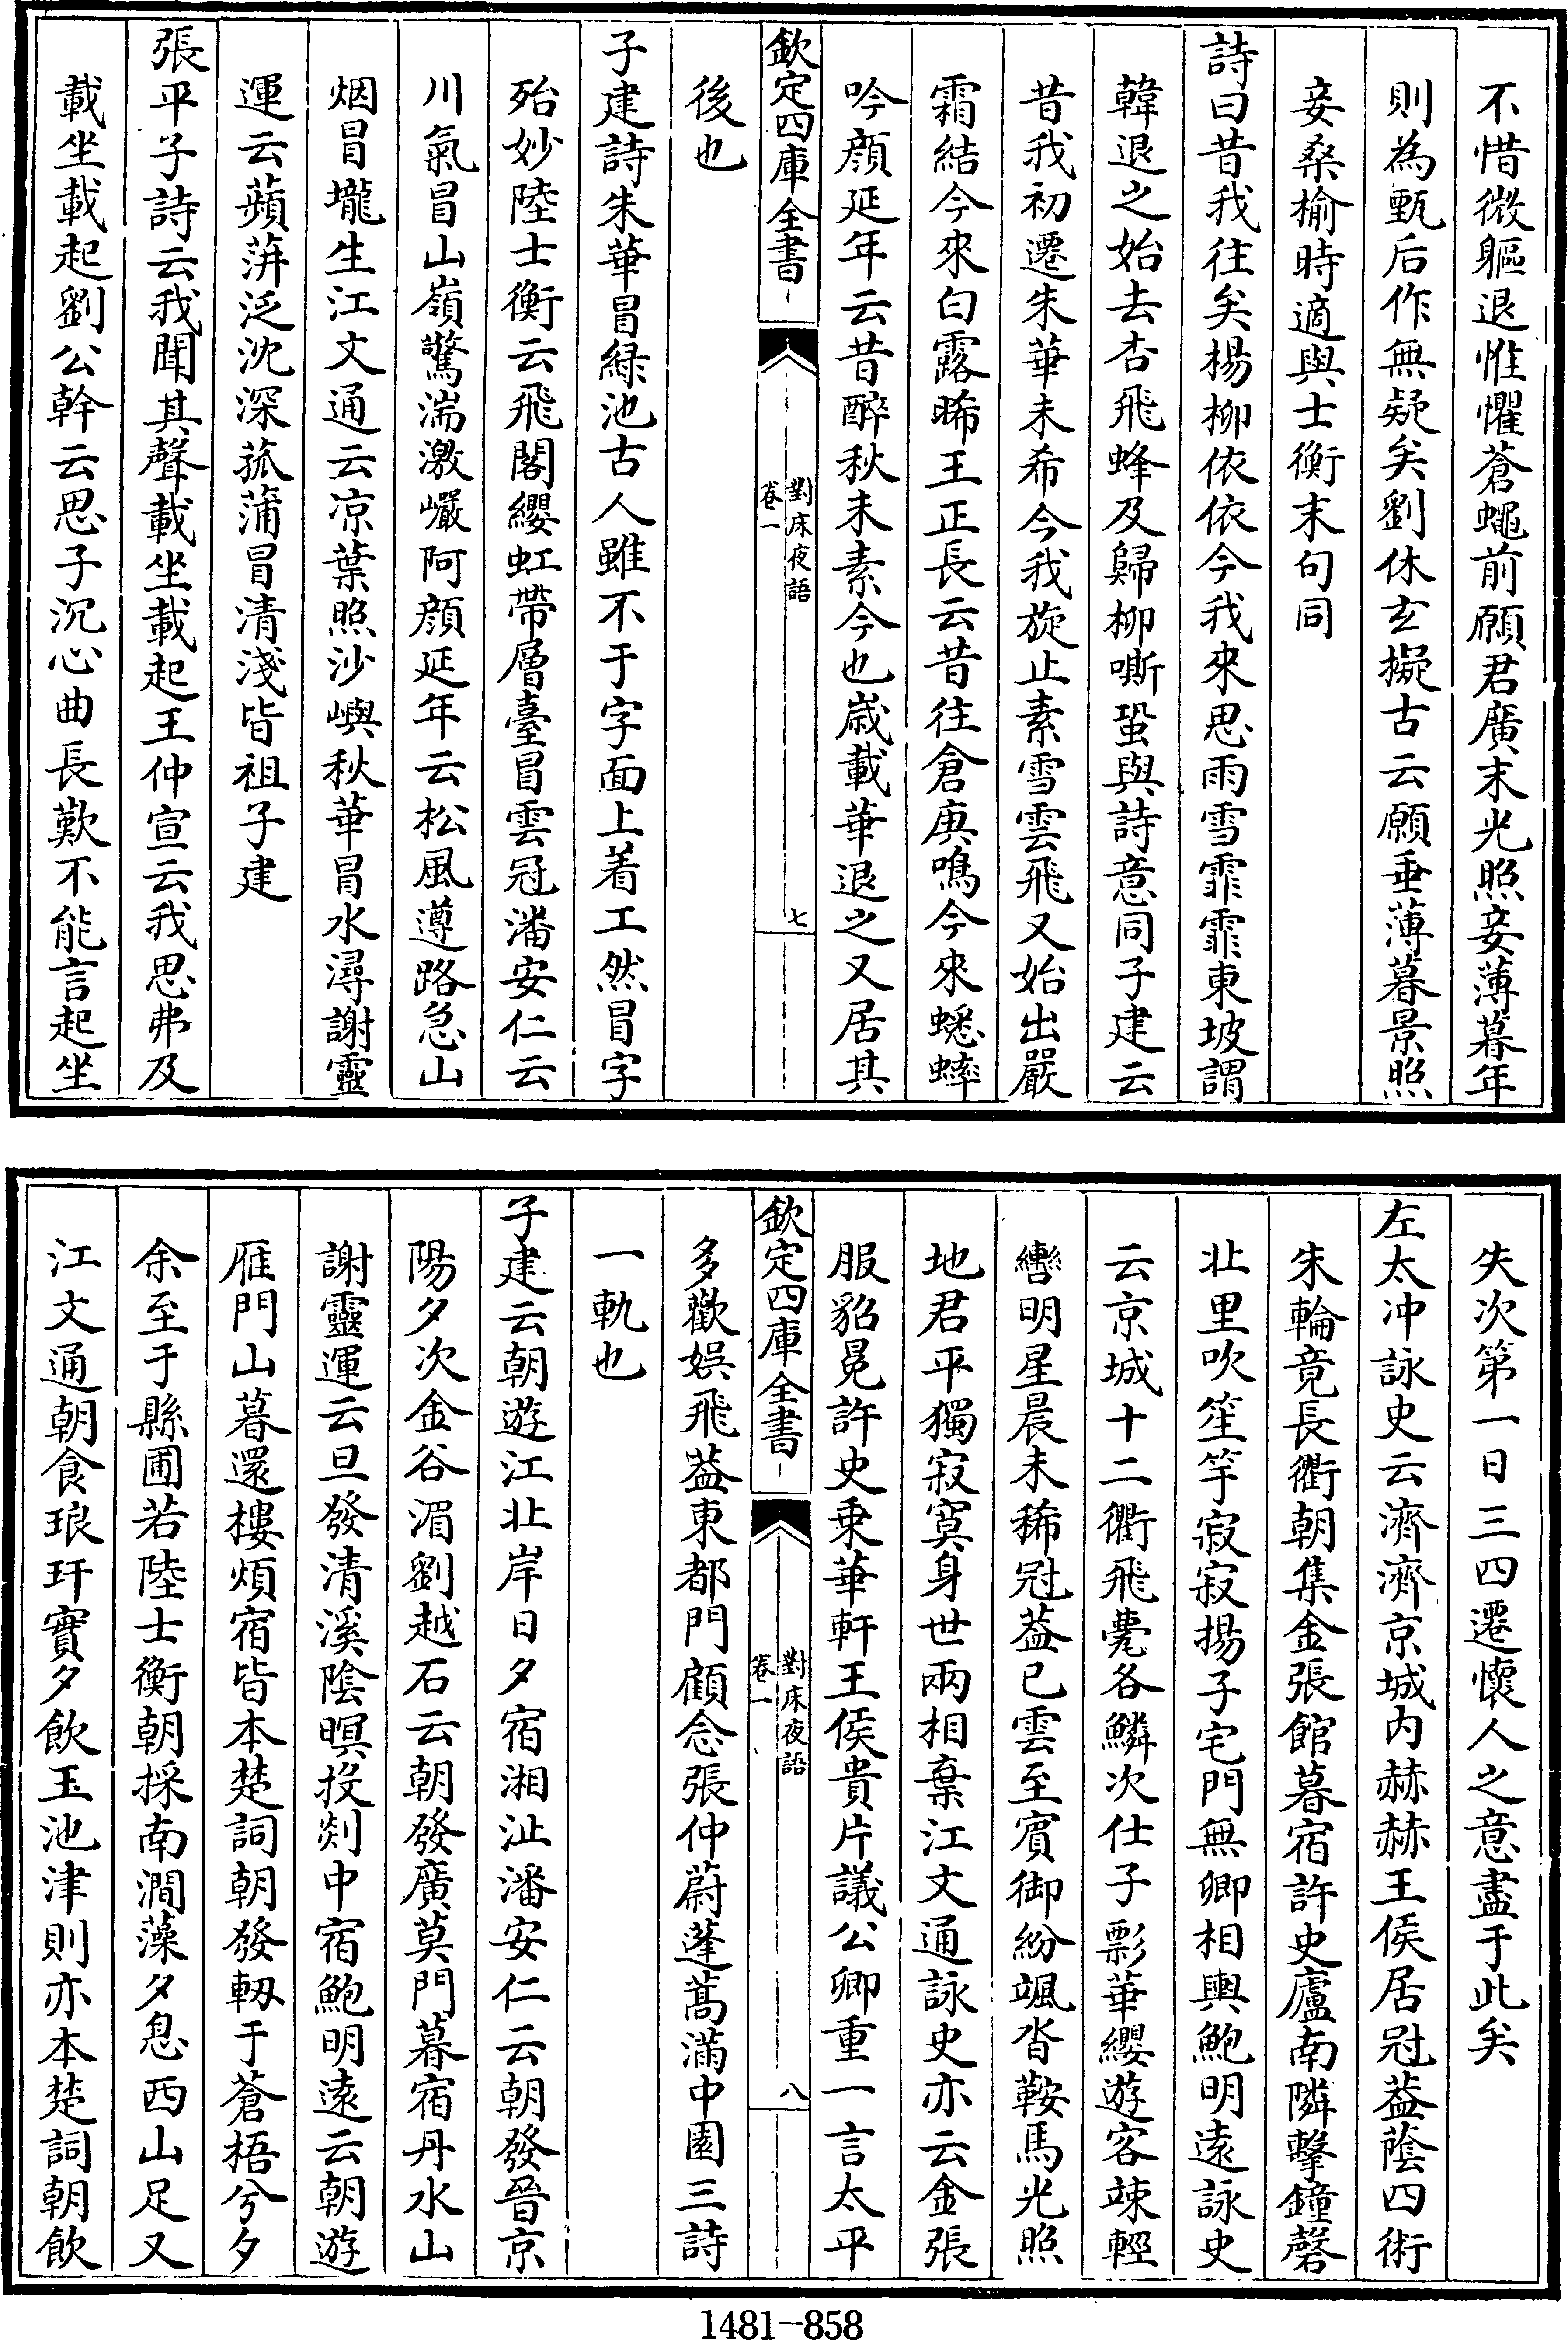 不惜微軀退惟懼蒼蠅前願君廣末光照妾薄暮年
則為甄后作無疑矣劉休玄擬古云願垂薄暮景照
妾桑榆時適與士衡末句同
詩曰昔我往矣楊柳依依今我來思雨雪霏霏東坡謂
韓退之始去杏飛蜂及歸柳嘶蛩與詩意同子建云
昔我初遷朱華未希今我旋止素雪雲飛又始出嚴
霜結今來白露晞王正長云昔往倉庚鳴今來蟋蟀
吟顔延年云昔醉秋未素今也歲載華退之又居其
欽定四庫全書
對床夜語
卷一
七
後也
子建詩朱華冒緑池古人雖不于字面上着工然冒字
殆妙陸士衡云飛閣纓虹帶層臺冒雲冠潘安仁云
川氣冒山嶺驚湍激巖阿顔延年云松風遵路急山
烟冒壠生江文通云凉葉照沙嶼秋華冒水潯謝靈
運云蘋蓱泛沈深菰蒲冒清淺皆祖子建
張平子詩云我聞其聲載坐載起王仲宣云我思弗及
載坐載起劉公幹云思子沉心曲長歎不能言起坐
失次第一日三四遷懷人之意盡于此矣
左太冲詠史云濟濟京城内赫赫王侯居冠葢蔭四術
朱輪竟長衢朝集金張館暮宿許史廬南隣擊鐘磬
北里吹笙竽寂寂揚子宅門無卿相輿鮑明遠詠史
云京城十二衢飛甍各鱗次仕子彯華纓遊客竦輕
轡明星晨未稀冠葢已雲至賓御紛颯沓鞍馬光照
地君平獨寂寞身世兩相棄江文通詠史亦云金張
服貂冕許史乗華軒王侯貴片議公卿重一言太平
欽定四庫全書
對床夜語
卷一
八
多歡娯飛葢東都門顧念張仲蔚蓬蒿滿中園三詩
一軌也
子建云朝遊江北岸日夕宿湘沚潘安仁云朝發晉京
陽夕次金谷湄劉越石云朝發廣莫門暮宿丹水山
謝靈運云旦發清溪陰暝投剡中宿鮑明遠云朝遊
雁門山暮還樓煩宿皆本楚詞朝發軔于蒼梧兮夕
余至于縣圃若陸士衡朝採南澗藻夕息西山足又
江文通朝食琅玕實夕飲玉池津則亦本楚詞朝飲
1481-858